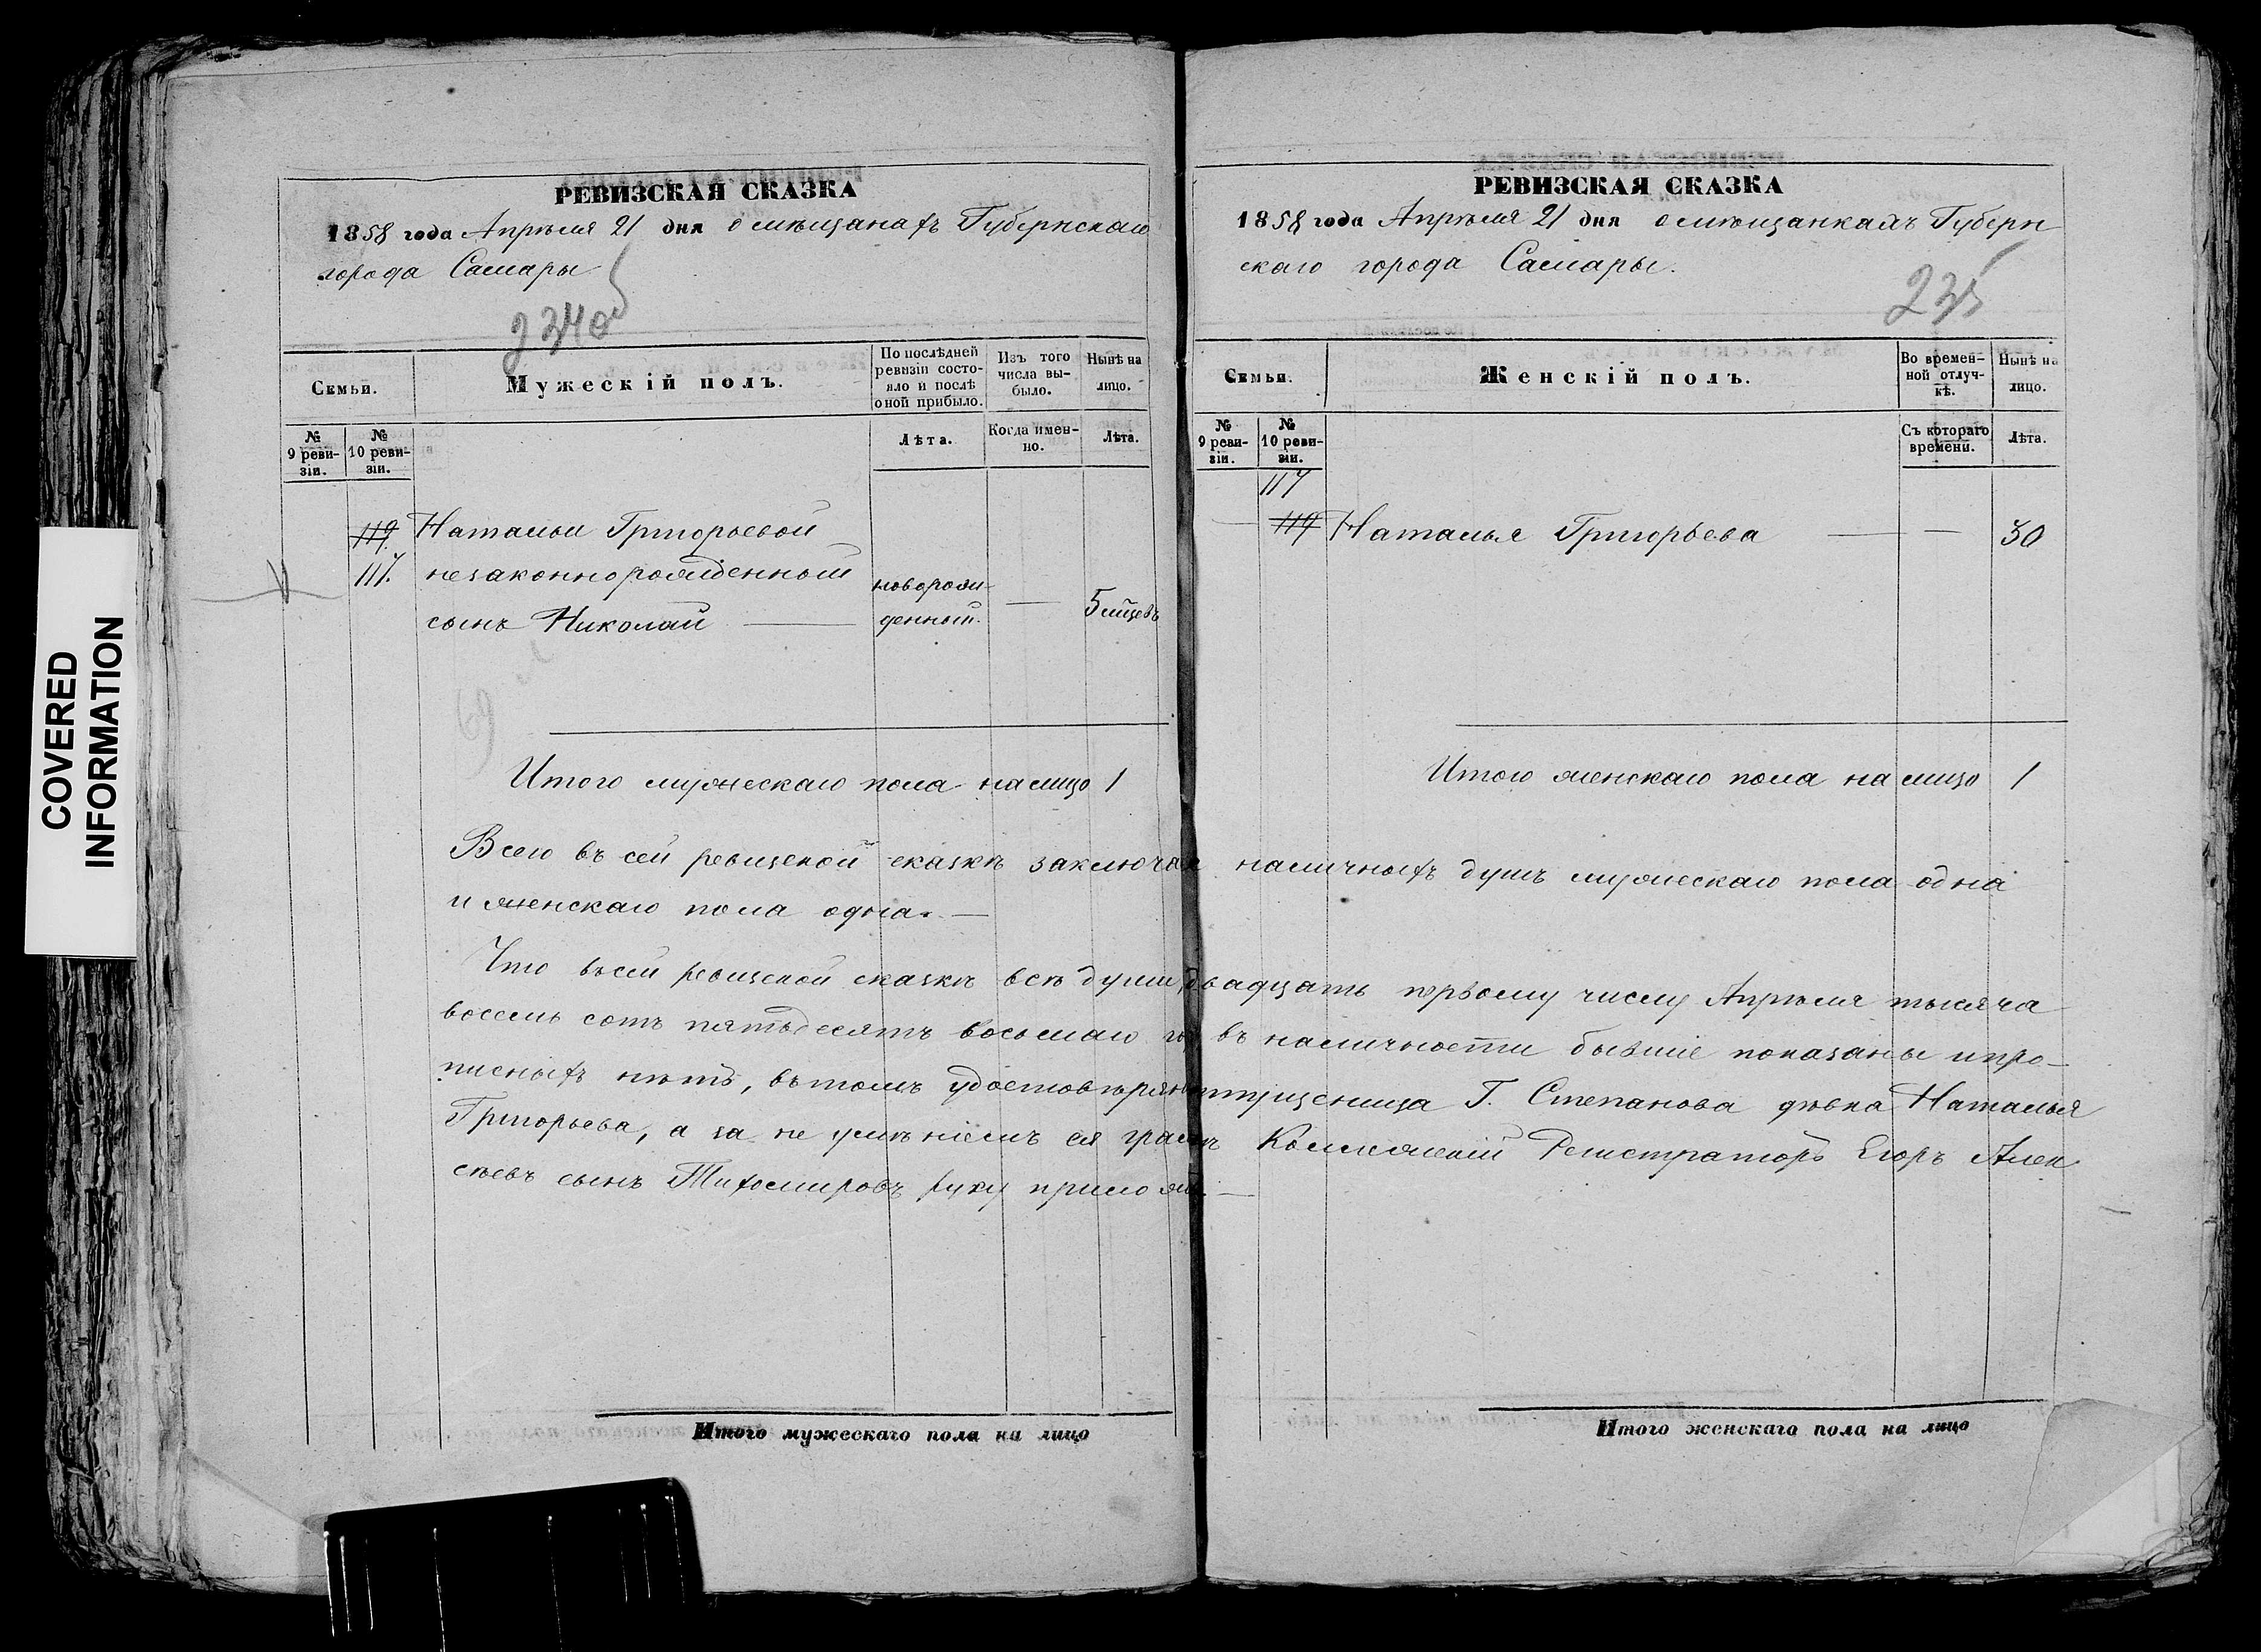 COVERED
INFORMATION
РЕВИЗСКАЯ СКАЗКА
1858 года Апрѣля 21 дня о мѣщанахъ Губернскаго
города Самары
234об
Семьи.
Мужескій полъ.
По послѣдней
ревизіи состо-
яло и послѣ
оной прибыло.
Изъ того
числа вы-
было.
Нынѣ на
лицо.
№
9 реви-
зіи.
№
10 реви-
зіи.
Лѣта.
Когда имен-
но.
Лѣта.
119. Натальи Григорьевой
117. незаконнорожденный
сынъ Николай
новорож-
денный.
—
5 мцевъ
Итого мужескаго пола на лицо 1
РЕВИЗСКАЯ СКАЗКА
1858 года Апрѣля 21 дня о мѣщанкахъ Губерн
скаго города Самары.
235
Семьи.
Женскій полъ.
Во времен-
ной отлуч-
кѣ.
Нынѣ на
лицо.
№
9 реви-
зіи.
№
10 реви-
зіи.
Съ котораго
времени.
Лѣта.
117
— 119 Наталья Григорьева — — 30
Итого женскаго пола на лицо 1
Всего въ сей ревизской сказкѣ заключая наличныхъ душъ мужескаго пола одна
и женскаго пола одна. —
Что въ сей ревизской сказкѣ всѣ души, двадцать первому числу Апрѣля тысяча
восемь сотъ пятьдесятъ восьмаго го въ наличности бывшіе показаны и про-
писныхъ нѣтъ, въ томъ удостовѣряю Г. Степанова дѣвка Наталья
Григорьева, а за не умѣніемъ ея грамотѣ Коллежскій Регистраторъ Егоръ Алек
сѣевъ сынъ Тихомировъ руку приложилъ. —
Итого мужескаго пола на лицо
Итого женскаго пола на лицо